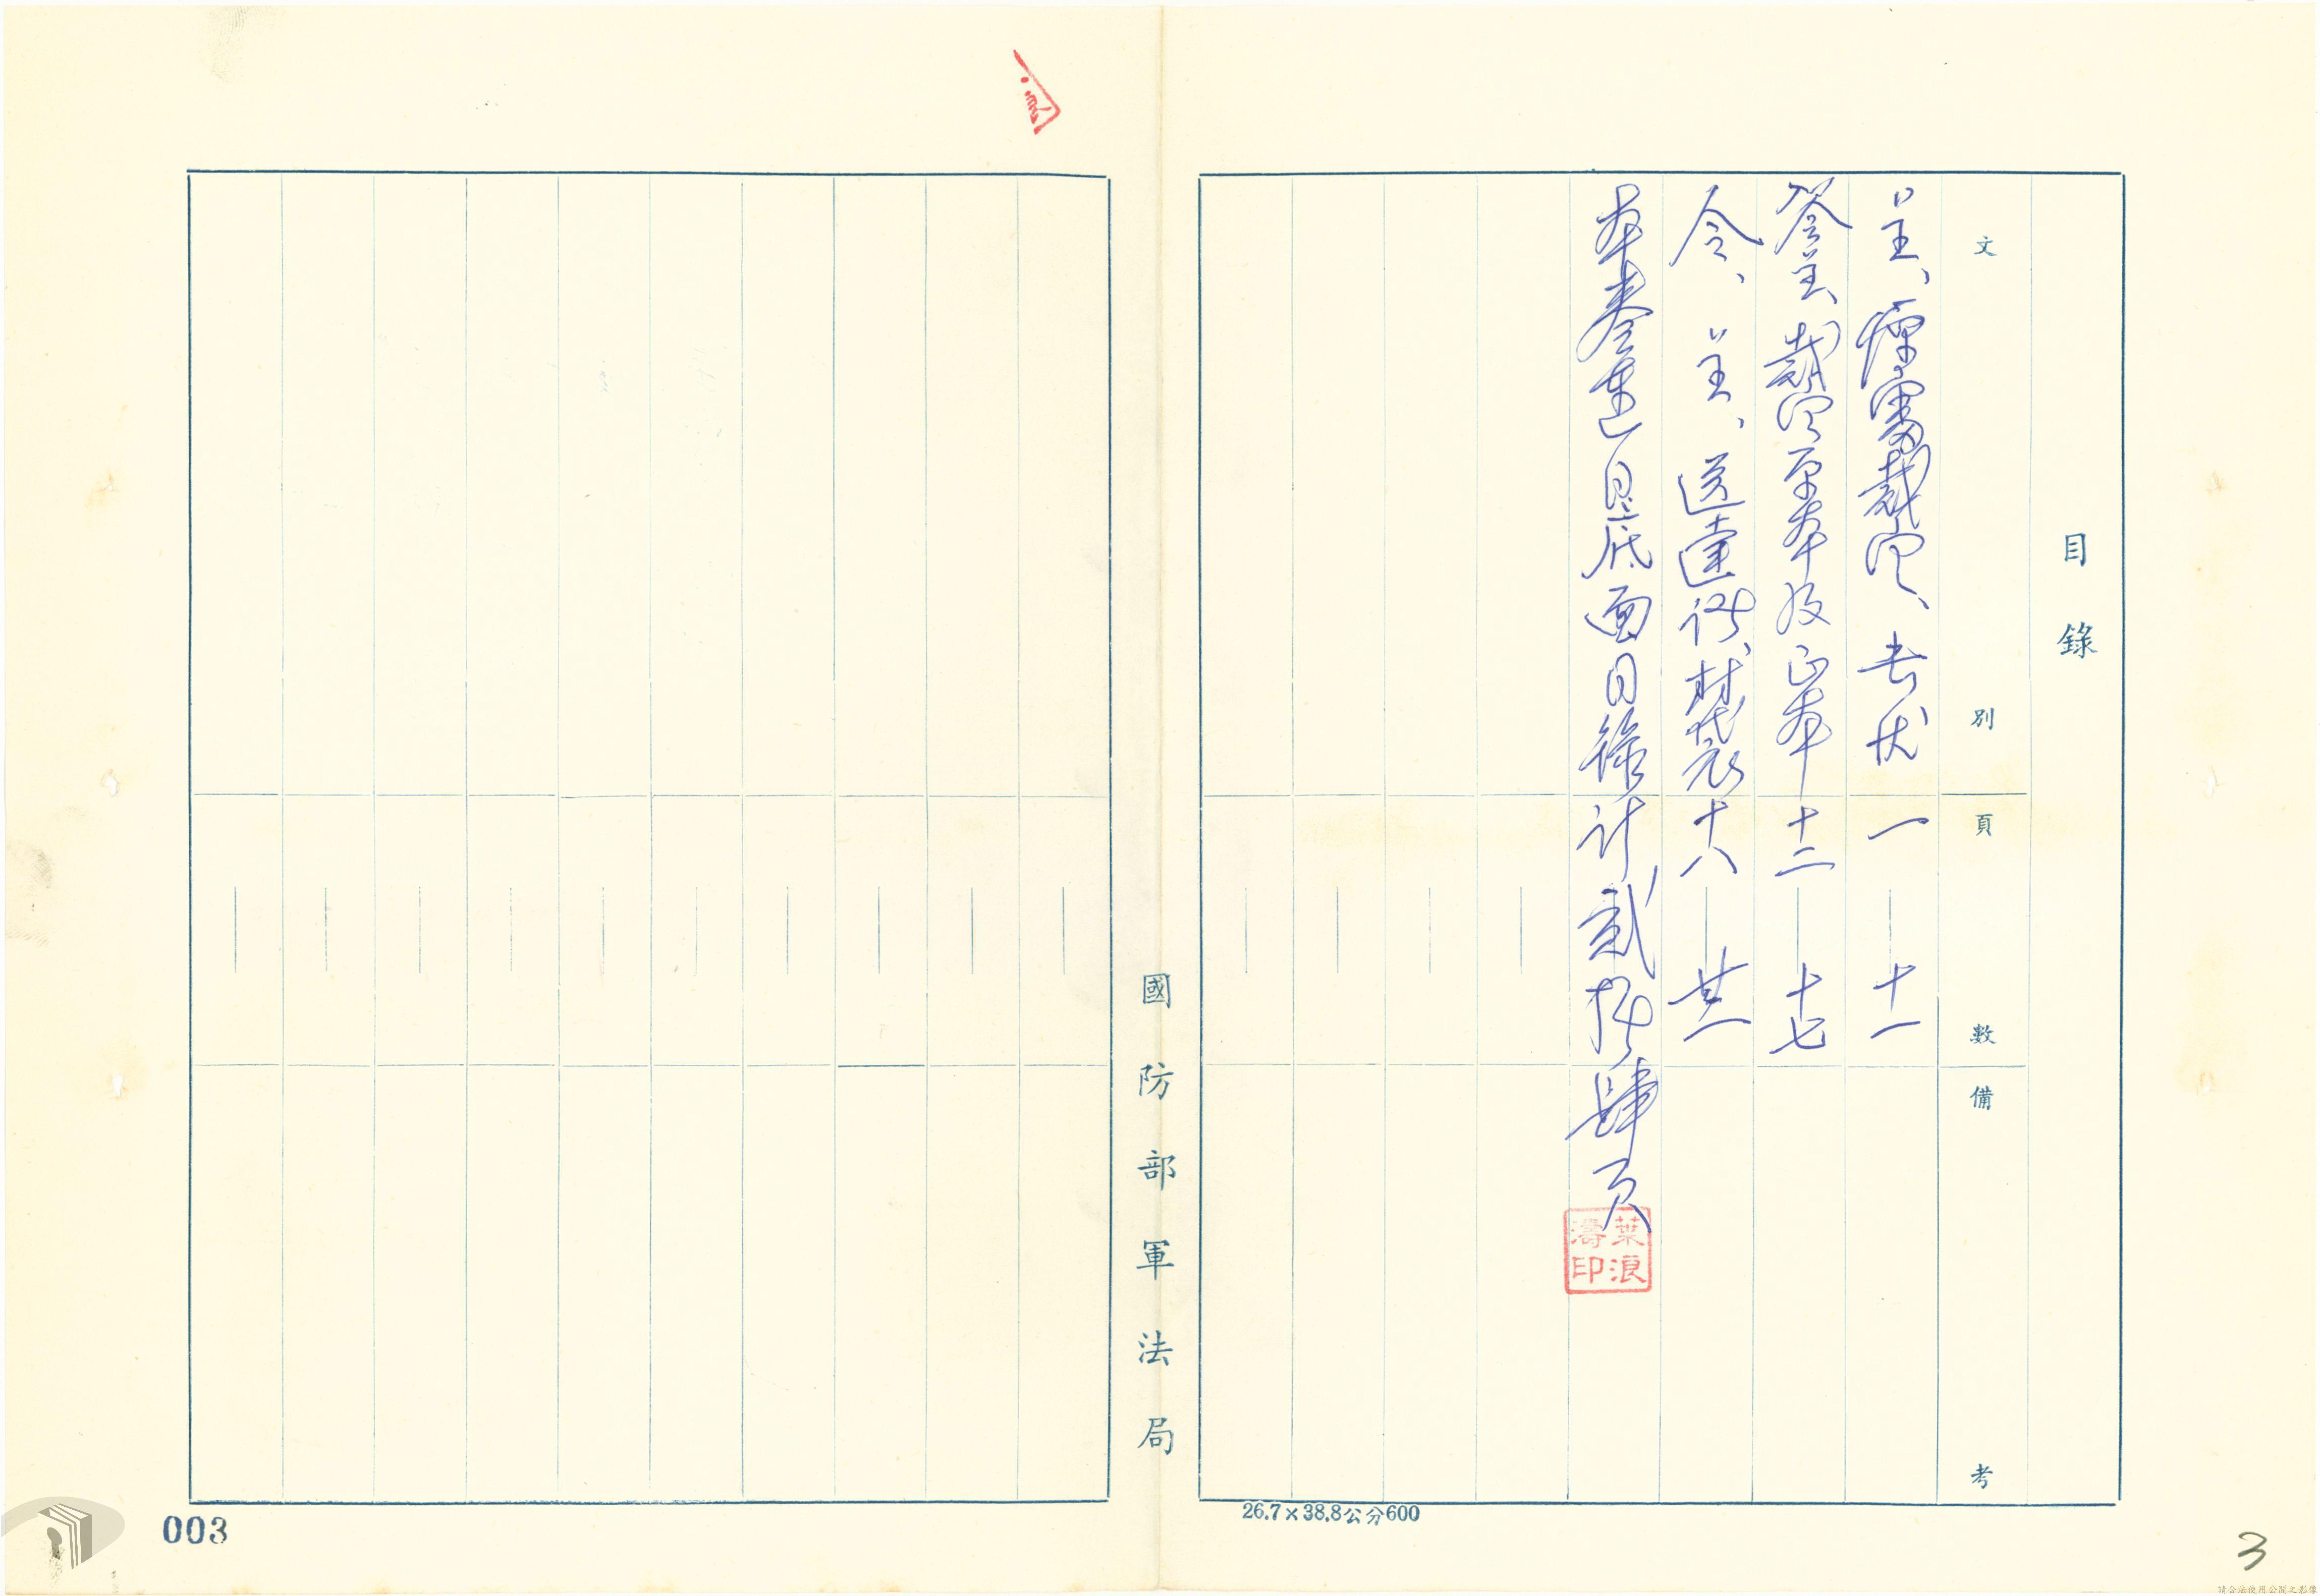 目錄
文別 頁數 備考
呈、 裁定、書狀 一 十一
簽呈、裁定原本及正本 十二 十七
令、呈、送達證、 十八 廿一
本卷連同底面目錄計貳拾肆頁
葉浪濤印
國防部軍法局
26.7×38.8公分600
003
3
請合法使用公開之影像